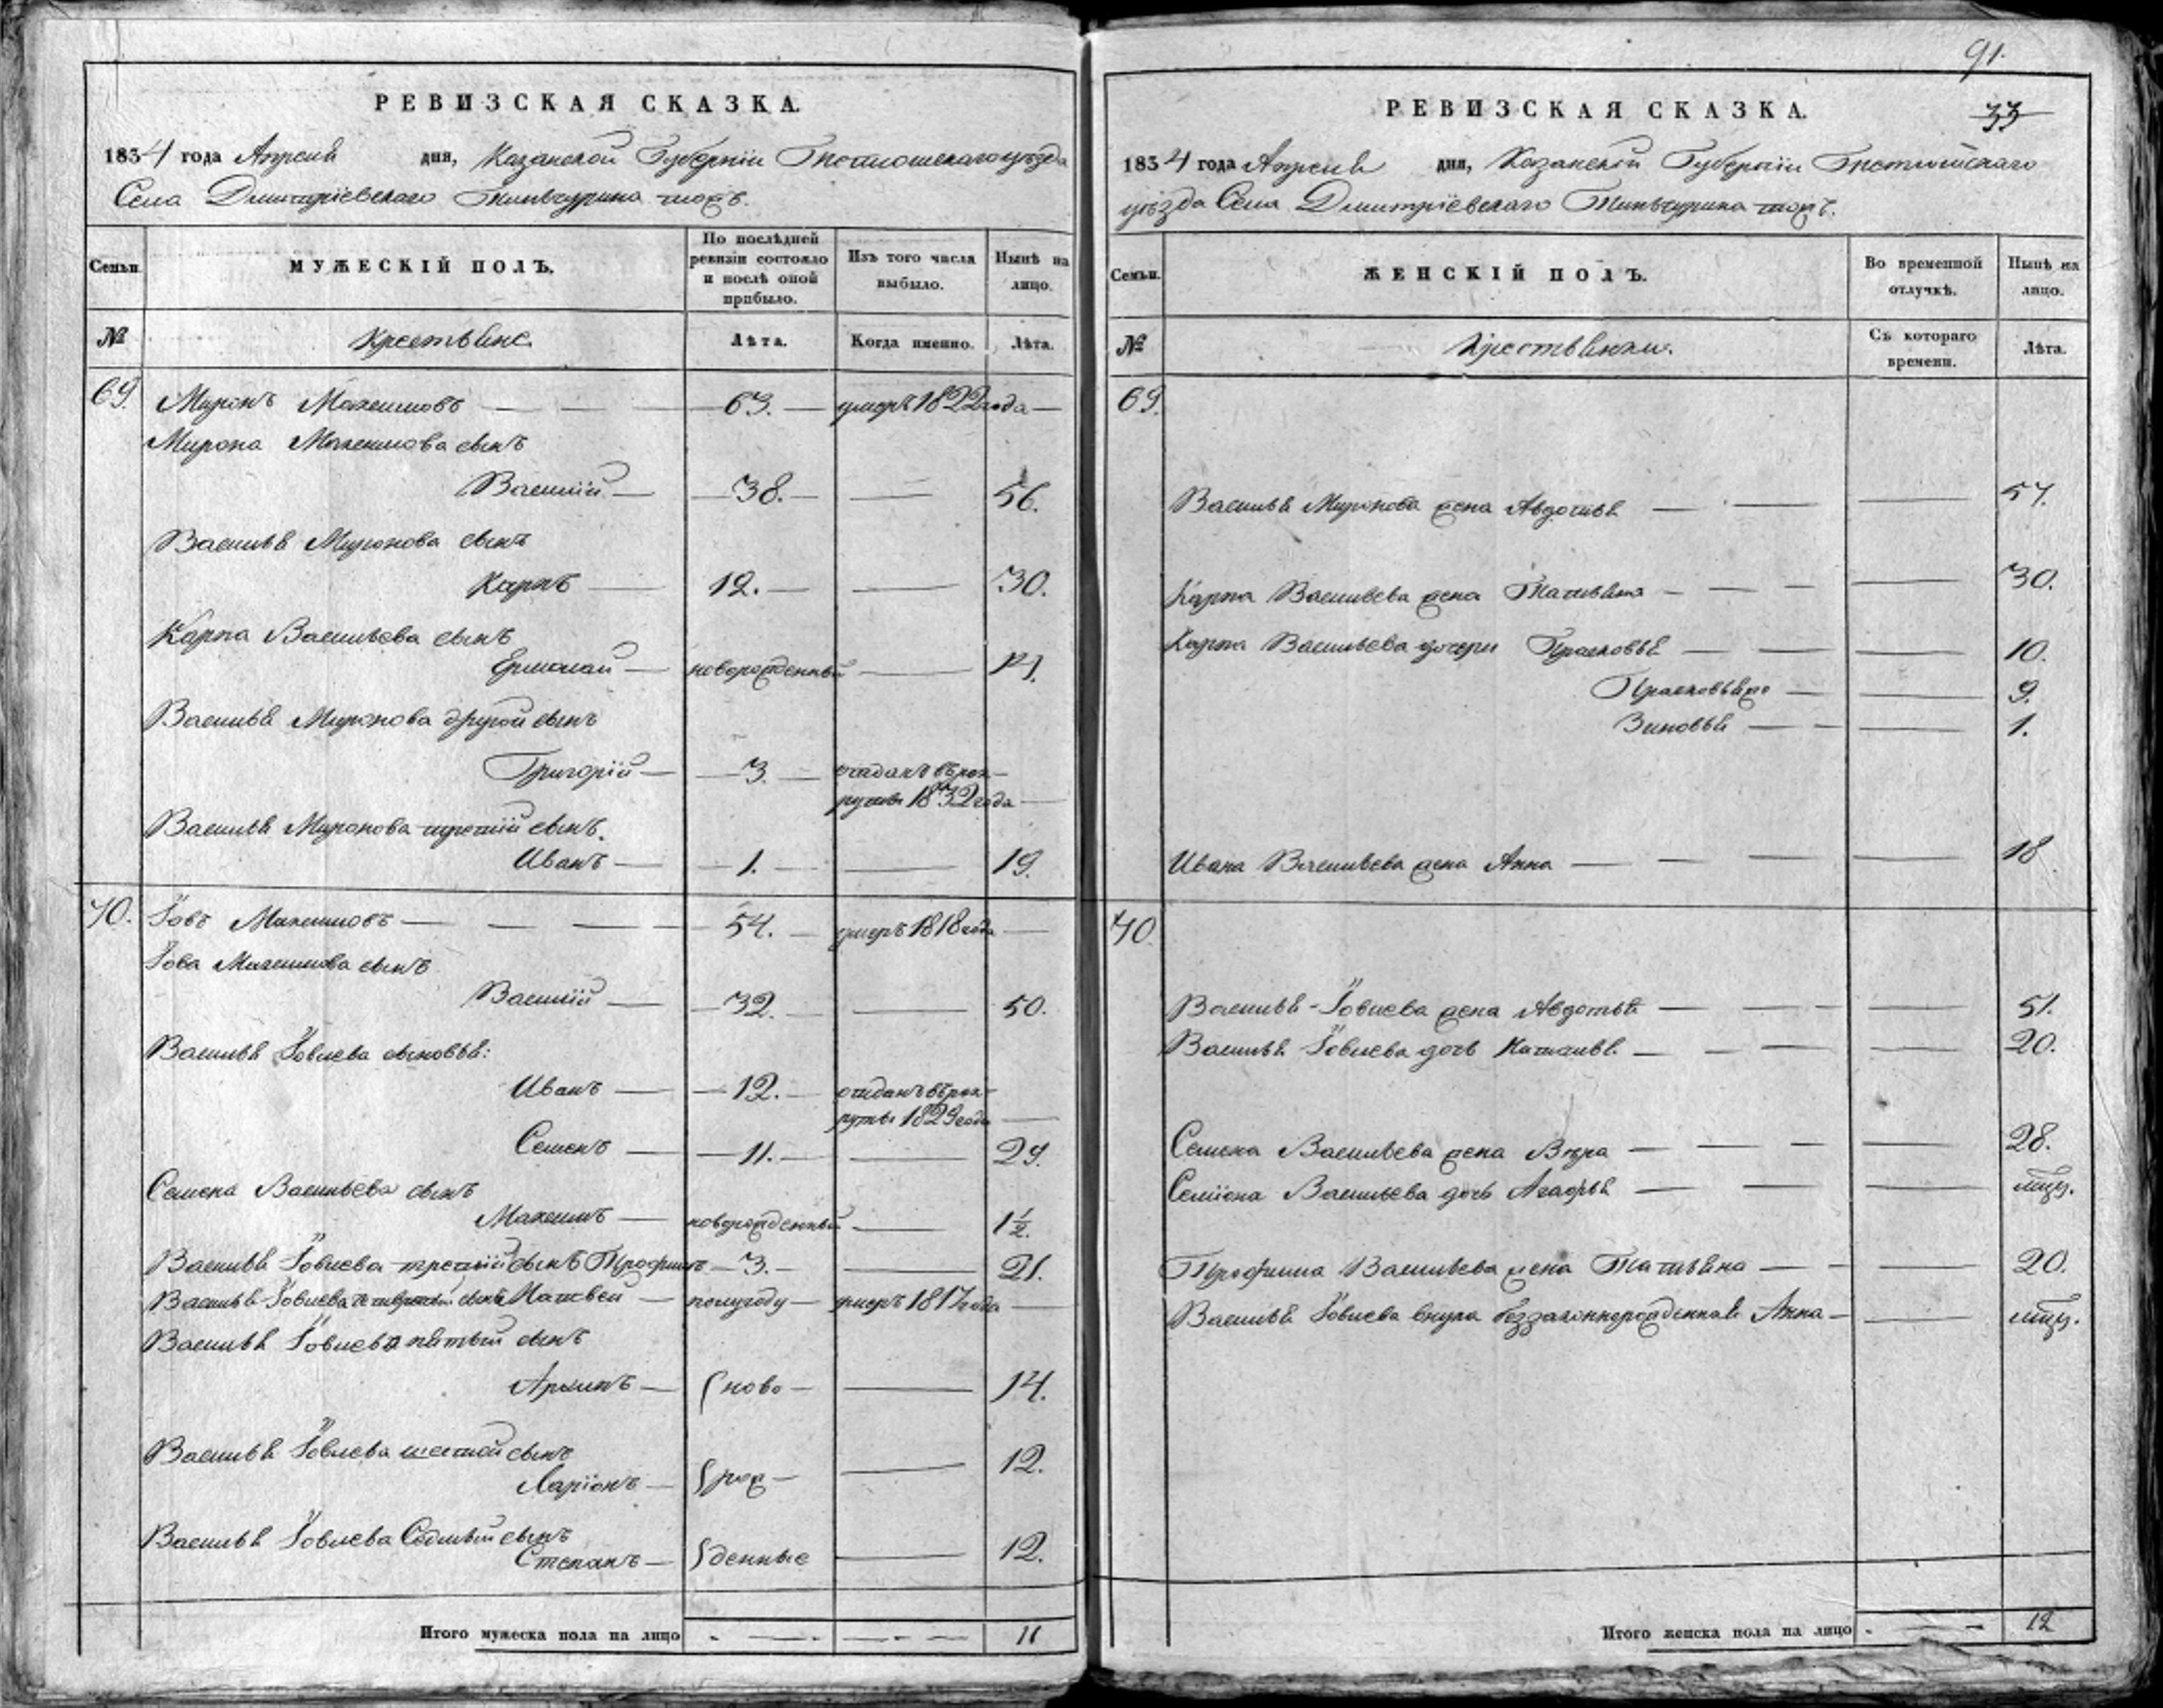 РЕВИЗСКАЯ СКАЗКА.
1834 года Апреля дня, Казанской Губернїи уѣзда
Села Дмитрїевскаго Тинчурина тожъ.
Семьи.
МУЖЕСКІЙ ПОЛЪ.
По послѣдней ревизіи состояло и послѣ оной прибыло.
Изъ того числа выбыло.
Нынѣ на лицо.
№
Крестьяне.
Лѣта.
Когда именно.
Лѣта.
69. Миронъ Максимовъ — — — 63. — умеръ 1822 года —
Мирона Максимова сынъ
Василій — — 38. — — 56.
Василья Миронова сынъ
Карпъ — 12. — — 30.
Карпа Васильева сынъ
Ермолай — новорожденный —
Василья Миронова другой сынъ
Григорій — — 3. — отданъ въ рек-
руты 1832 года —
Василья Миронова третій сынъ.
Иванъ — — 1. — — 19.
70. Іовъ Максимовъ — — — — 54. — умеръ 1818 года —
Іова Максимова сынъ
Василій — — 32. — — 50.
Василья Іовлева сыновья:
Иванъ — — 12. — отданъ въ рек-
руты 1829 года —
Семенъ — — 11. — — 29.
Семена Васильева сынъ
Максимъ — новорожденный — 1½.
Василья Іовлева третій сынъ Трофимъ — 3. — — 21.
Василья Іовлева четвертый сынъ Матвей — полугоду — умеръ 1817 года —
Василья Іовлева пятый сынъ
Архипъ — ново — — 14.
Василья Іовлева шестой сынъ
Ларіонъ — рож — — 12.
Василья Іовлева Седмый сынъ
Степанъ — денные — 12.
Итого мужеска пола на лицо 11
91.
33
РЕВИЗСКАЯ СКАЗКА.
1834 года Апреля дня, Казанской Губернїи
уѣзда Села Дмитрїевскаго Тинчурина тожъ.
Семьи.
ЖЕНСКІЙ ПОЛЪ.
Во временной отлучкѣ.
Нынѣ на лицо.
№
Крестьянки.
Съ котораго времени.
Лѣта.
69.
Василья Миронова жена Авдотья — — — 57.
Карпа Васильева жена Татьяна — — — — 30.
Карпа Васильева дочери Прасковья — — — — 10.
Прасковья же — — 9.
Зиновья — — — 1.
Ивана Васильева жена Анна — — — — 18
70.
Василья Іовлева жена Авдотья — — — — 51.
Василья Іовлева дочь Наталья — — — — 20.
Семена Васильева жена Вѣра — — — — 28.
Семіона Васильева дочь Агафья — — — —
Трофима Васильева жена Татьяна — — — 20.
Василья Іовлева внука беззаконнорожденная Анна — —
Итого женска пола на лицо 12